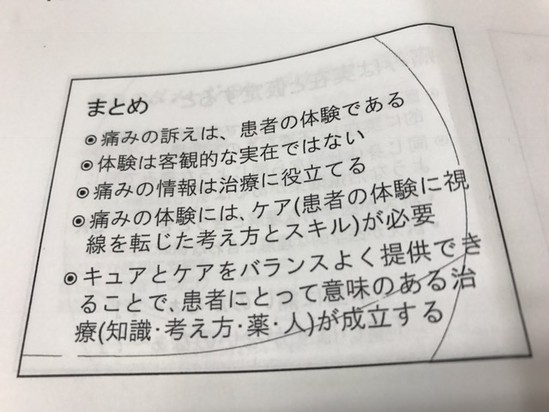 まとめ
◉痛みの訴えは、患者の体験である
◉体験は客観的な実在ではない
◉痛みの情報は治療に役立てる
◉痛みの体験には、ケア(患者の体験に視
線を転じた考え方とスキル)が必要
◉キュアとケアをバランスよく提供でき
ることで、患者にとって意味のある治
療(知識・考え方・薬・人)が成立する